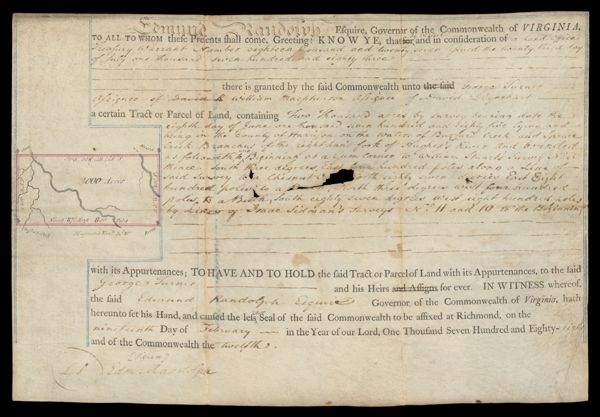 Edmund Randolph Esquire, Governor of the Commonwealth of VIRGINIA,
TO ALL TO WHOM these Presents shall come, Greeting: KNOW YE, that for and in consideration of a Land Office
Treasury Warrant Number eighteen thousand and twenty seven issued the twenty third day
of July one thousand seven hundred and eighty three
there is granted by the said Commonwealth unto the said George Turner
Assignee of David & William Macpherson Assignee of David
a certain Tract or Parcel of Land, containing Two Thousand acres by survey bearing date the
eighth day of June one thousand seven hundred and eighty lying and
being in the County of Harrison on the Waters of and Spruce
Creek Branches of the right hand fork of Hughes's River and bounded
as followeth to wit Beginning at a corner to Survey No
thence South three degrees East four hundred poles along a line of
said Survey to a Chesnut North eighty seven degrees East Eight
hundred poles to a North three degrees West four hundred
poles to a Beech, South eighty seven degrees West eight hundred poles
by Lines of Isaac Sidman's Surveys No. 11 and 10 to the Beginning
2000 Acres
with its Appurtenances; TO HAVE AND TO HOLD the said Tract or Parcel of Land with its Appurtenances, to the said
George Turner and his Heirs and Assigns for ever. IN WITNESS whereof,
the said Edmund Randolph Esquire Governor of the Commonwealth of Virginia, hath
hereunto set his Hand, and caused the lesser Seal of the said Commonwealth to be affixed at Richmond, on the
nineteenth Day of February in the Year of our Lord, One Thousand Seven Hundred and Eighty-eight
and of the Commonwealth the twelfth.
LS Edm: Randolph